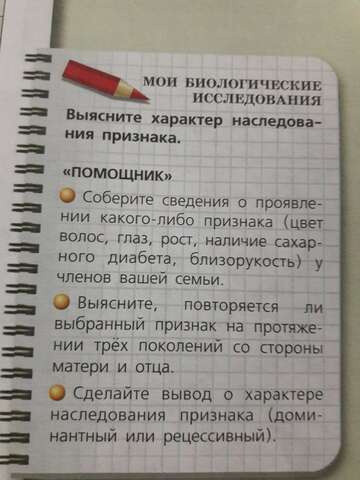 МОИ БИОЛОГИЧЕСКИЕ
ИССЛЕДОВАНИЯ
Выясните характер наследова-
ния признака.
«ПОМОЩНИК»
Соберите сведения о проявле-
нии какого-либо признака (цвет
волос, глаз, рост, наличие сахар-
ного диабета, близорукость) у
членов вашей семьи.
Выясните, повторяется ли
выбранный признак на протяже-
нии трёх поколений со стороны
матери и отца.
Сделайте вывод о характере
наследования признака (доми-
нантный или рецессивный).